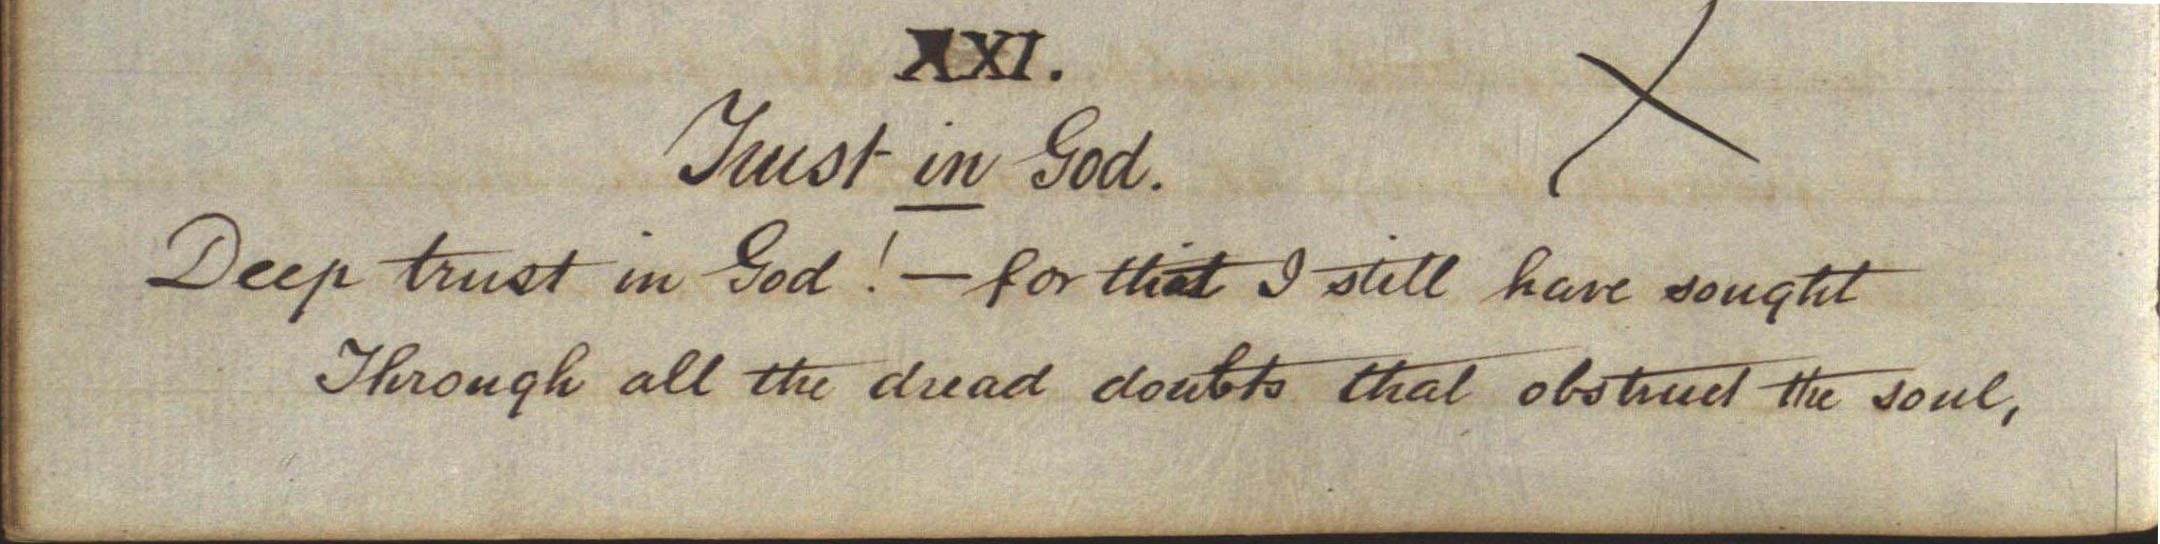 XXI.
Trust in God.
Deep trust in God! — for that I still have sought
Through all the dread doubts that obstruct the soul,